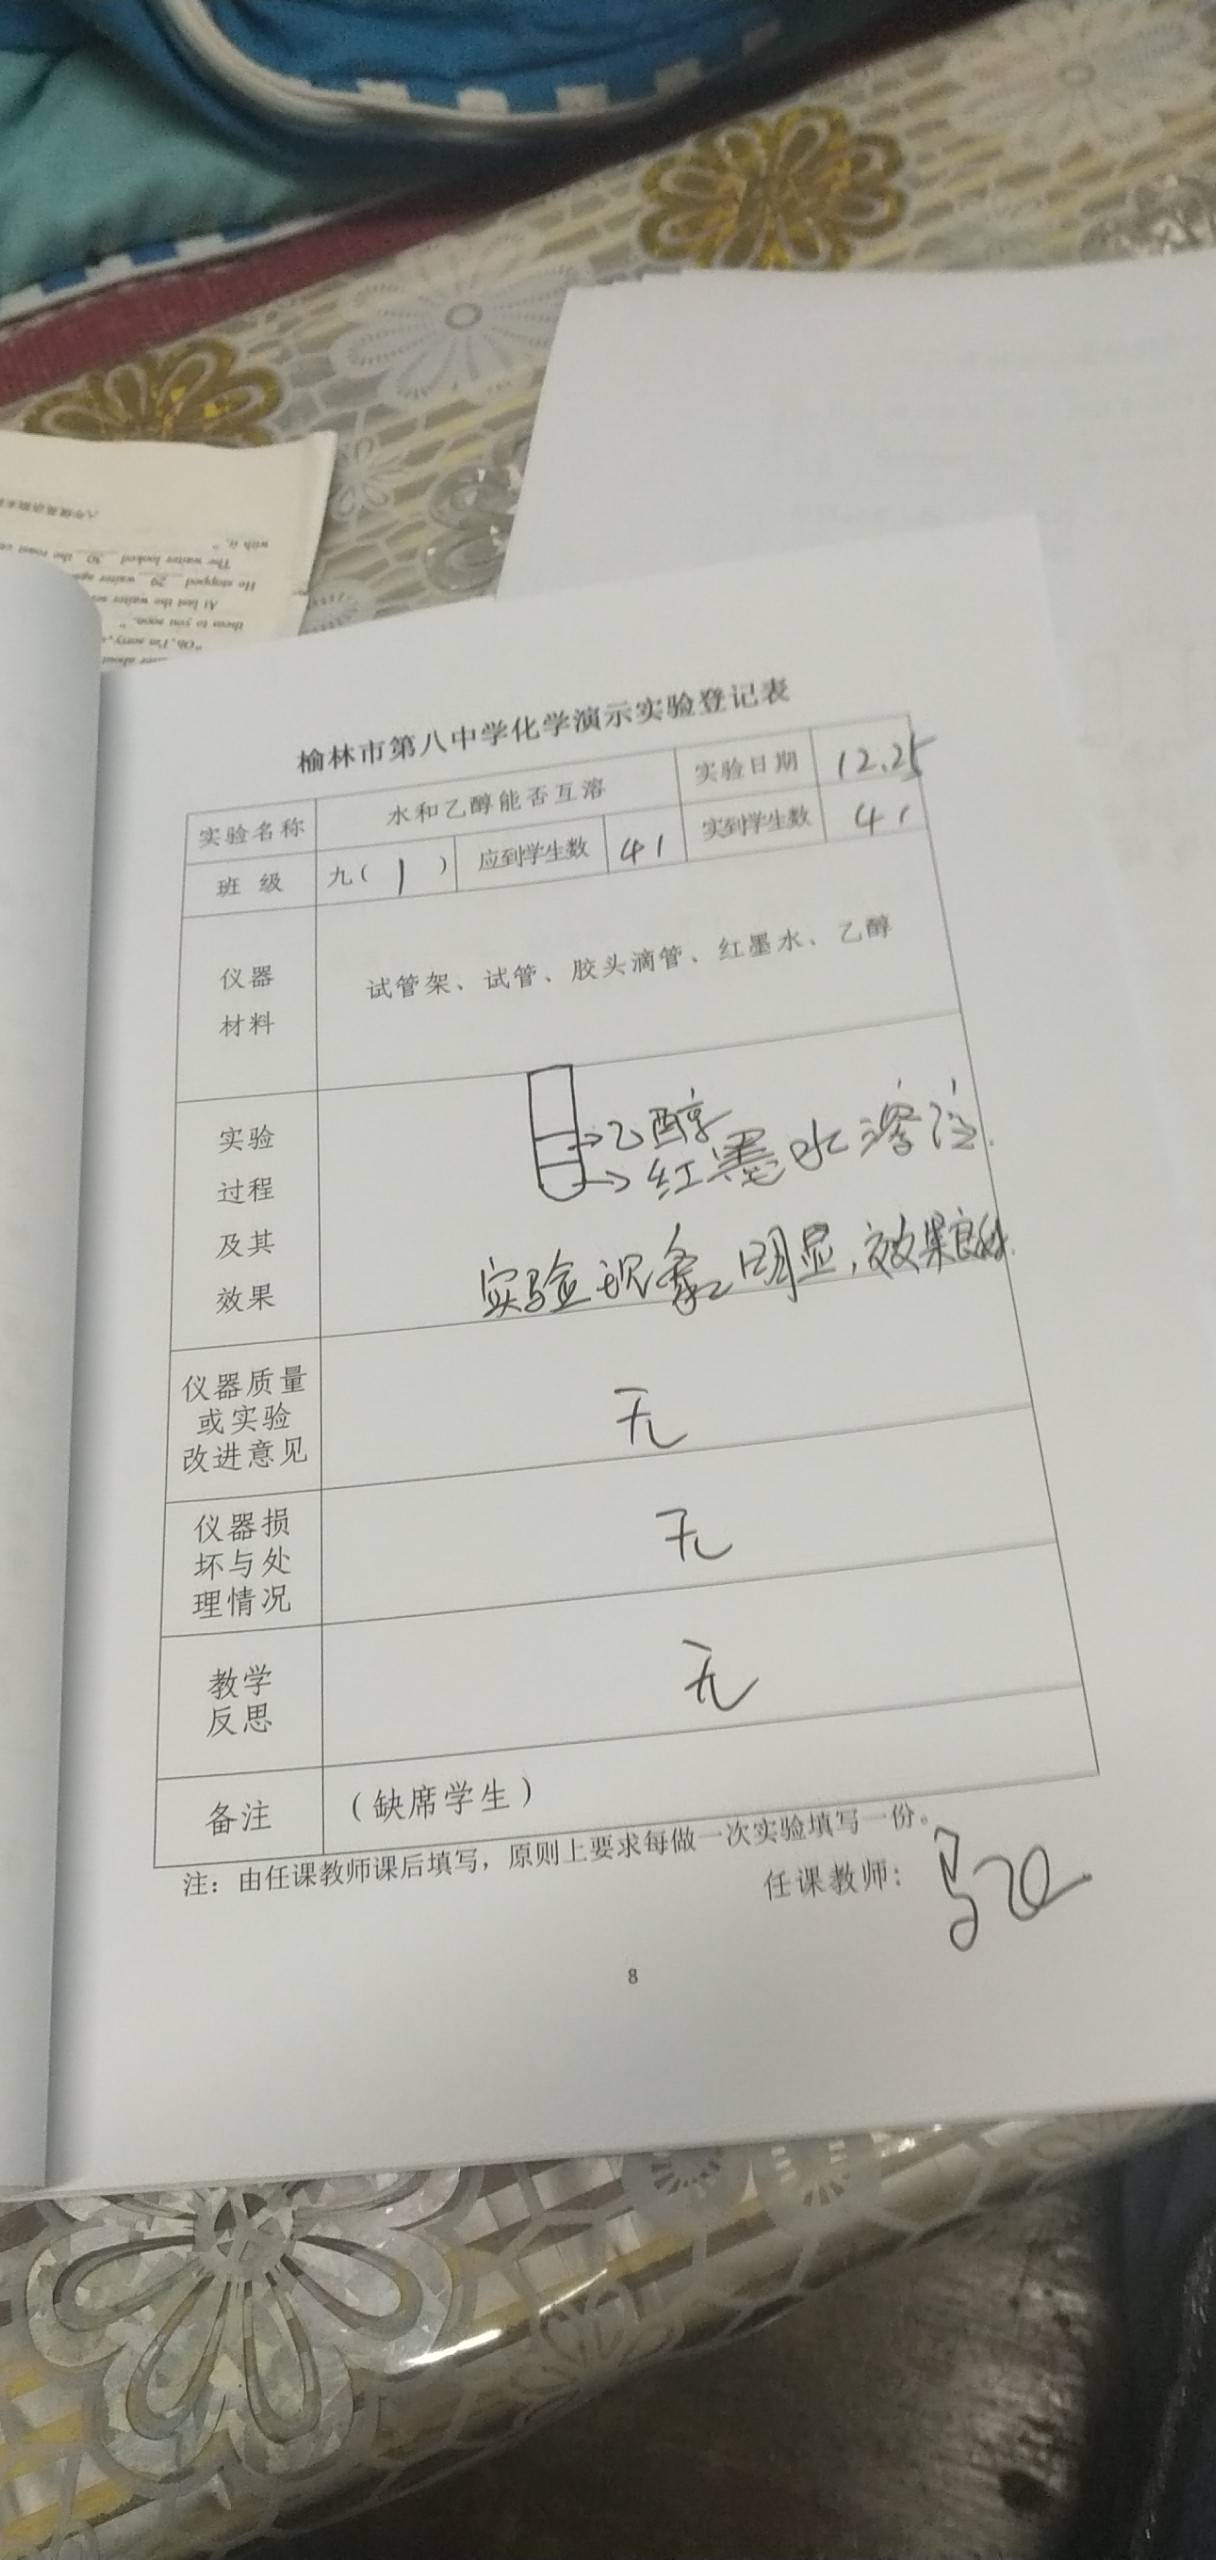 八年级英语期末
with it. "
The waiter looked 30 the roast
He stopped 29 waiter
At last the waiter
them to you soon. "
"Oh, I'm sorry,
about
榆林市第八中学化学演示实验登记表
实验名称 水和乙醇能否互溶 实验日期 12.25
班 级 九( 1 ) 应到学生数 41 实到学生数 41
仪器
材料
试管架、试管、胶头滴管、红墨水、乙醇
实验
过程
及其
效果
→乙醇
→红墨水溶液.
实验现象明显,效果良好.
仪器质量
或实验
改进意见
无
仪器损
坏与处
理情况
无
教学
反思
无
备注 (缺席学生)
注:由任课教师课后填写,原则上要求每做一次实验填写一份。
任课教师:
8